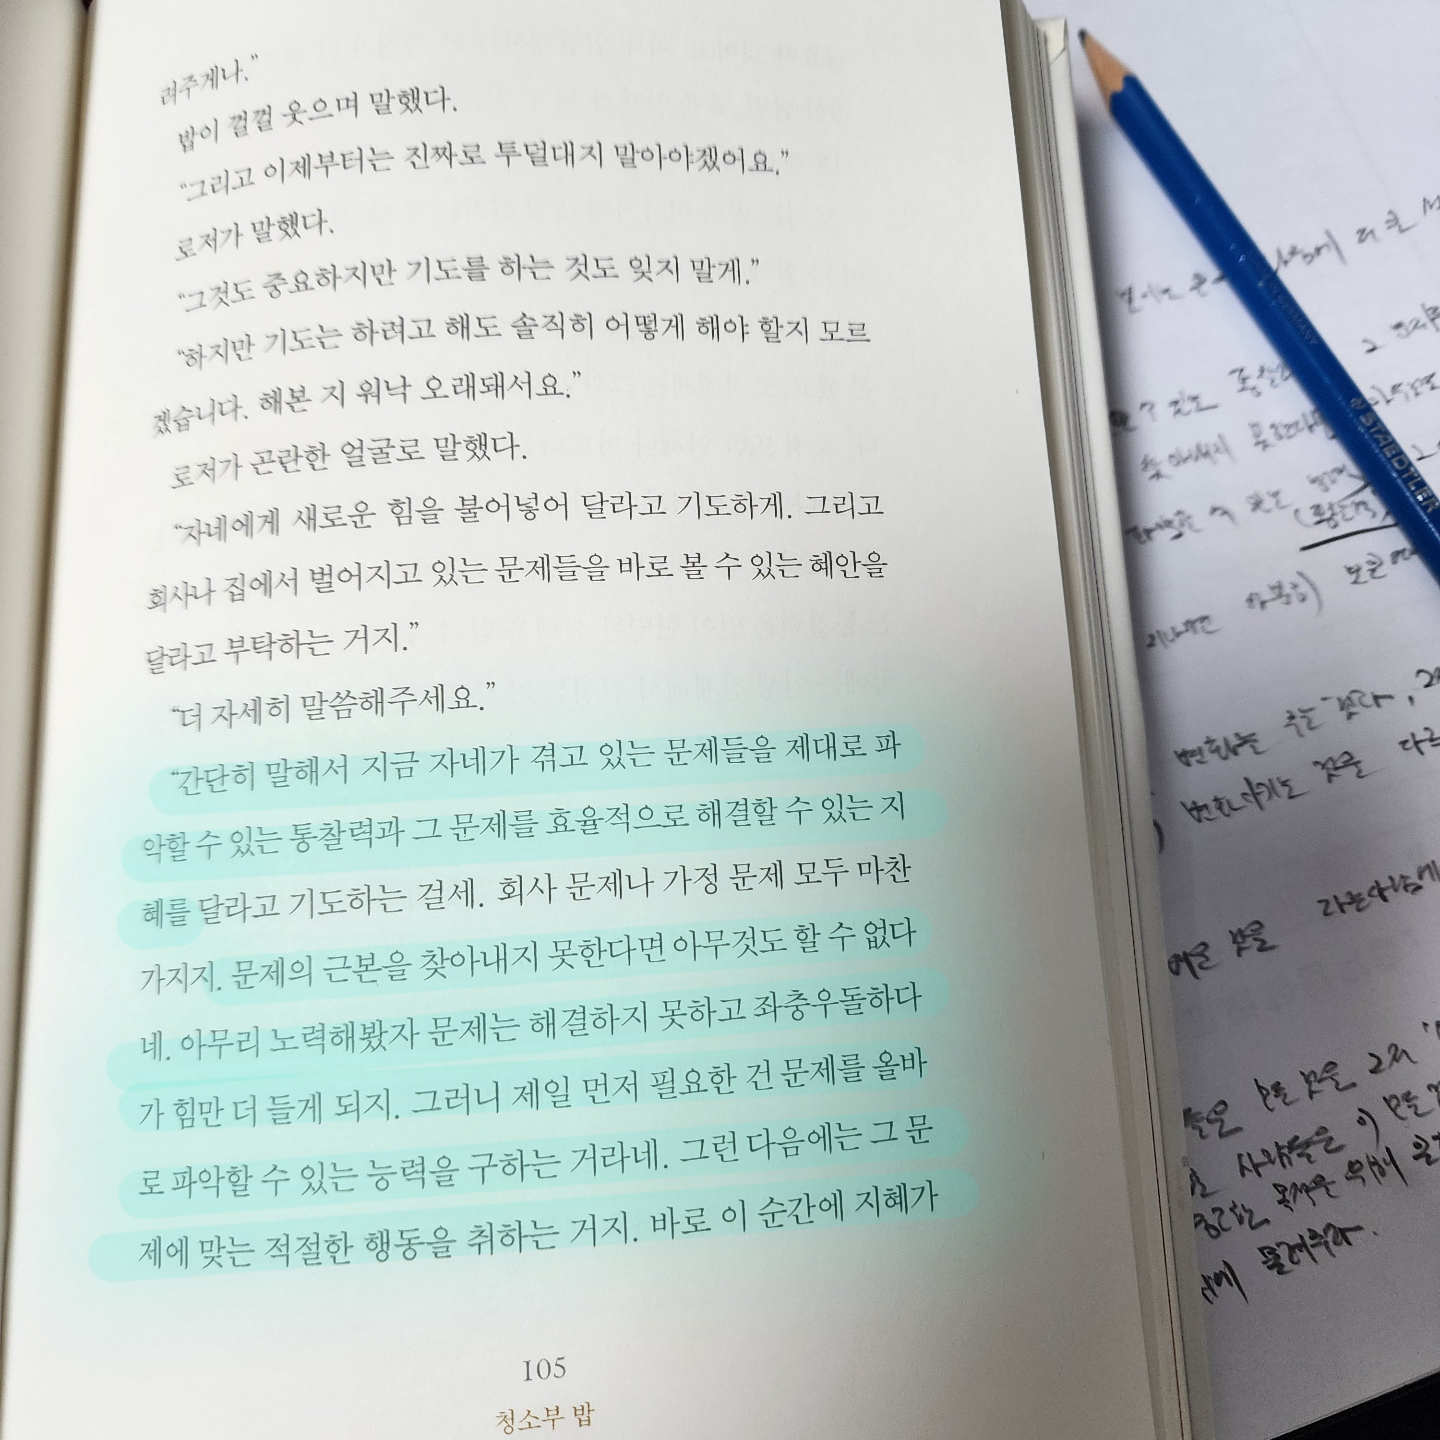 려주게나.”
밥이 껄껄 웃으며 말했다.
“그리고 이제부터는 진짜로 투덜대지 말아야겠어요.”
로저가 말했다.
“그것도 중요하지만 기도를 하는 것도 잊지 말게.”
“하지만 기도는 하려고 해도 솔직히 어떻게 해야 할지 모르
겠습니다. 해본 지 워낙 오래돼서요.”
로저가 곤란한 얼굴로 말했다.
“자네에게 새로운 힘을 불어넣어 달라고 기도하게. 그리고
회사나 집에서 벌어지고 있는 문제들을 바로 볼 수 있는 혜안을
달라고 부탁하는 거지.”
“더 자세히 말씀해주세요.”
“간단히 말해서 지금 자네가 겪고 있는 문제들을 제대로 파
악할 수 있는 통찰력과 그 문제를 효율적으로 해결할 수 있는 지
혜를 달라고 기도하는 걸세. 회사 문제나 가정 문제 모두 마찬
가지지. 문제의 근본을 찾아내지 못한다면 아무것도 할 수 없다
네. 아무리 노력해봤자 문제는 해결하지 못하고 좌충우돌하다
가 힘만 더 들게 되지. 그러니 제일 먼저 필요한 건 문제를 올바
로 파악할 수 있는 능력을 구하는 거라네. 그런 다음에는 그 문
제에 맞는 적절한 행동을 취하는 거지. 바로 이 순간에 지혜가
105
청소부 밥
STAEDTLER
찾아내지 못한다면
변화는 주는
변화시키는 것을
모든 것은 그저
사람들은 이 모든
위해